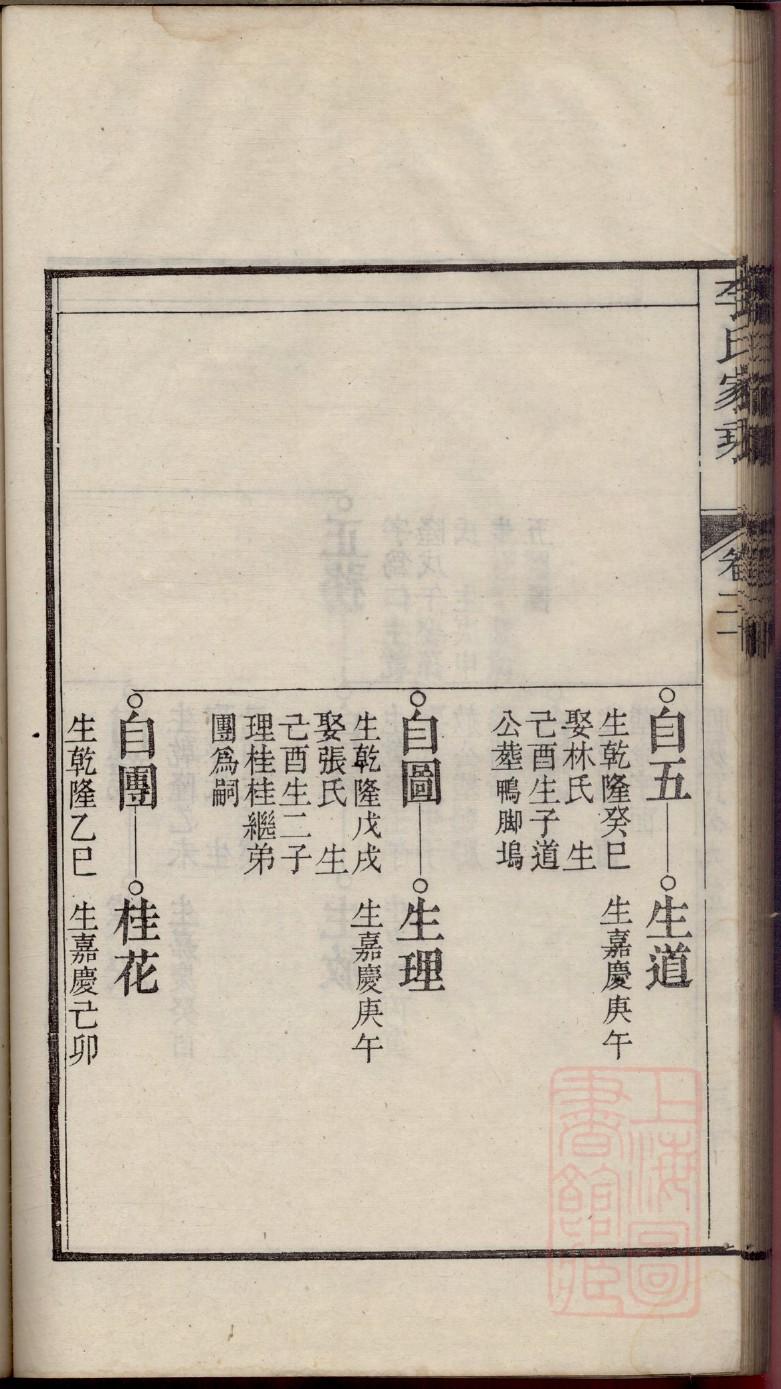 李氏家乘
卷二十
自五
生乾隆癸巳
娶林氏 生
己酉生子道
公塟鴨脚塢
生道
生嘉慶庚午
自圖
生乾隆戊戌
娶張氏 生
己酉生二子
理桂桂繼弟
團爲嗣
生理
生嘉慶庚午
自團
生乾隆乙巳
桂花
生嘉慶己卯
上海圖
書館藏